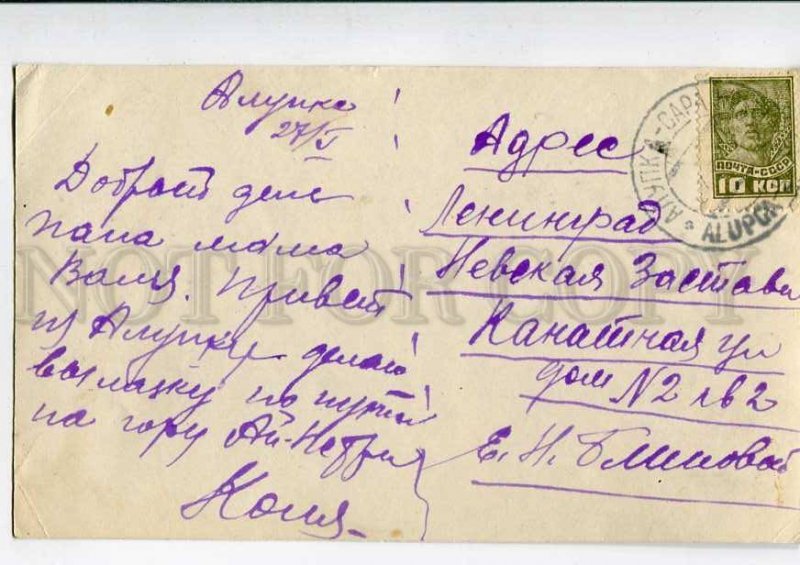 Алупка
27/V
Добрый день
папа мама
Валя. Привет
из Алупки делаю
вылазку по путей
на гору Ай-Петри
Коля
Адрес
Ленинград
Невская Застава
Канатная ул
дом N2 кв 2
Е. Н. Блиновой
ПОЧТА-СССР
10 КОП
АЛУПКА-САРА
ALUPCA
NOT FOR COPY